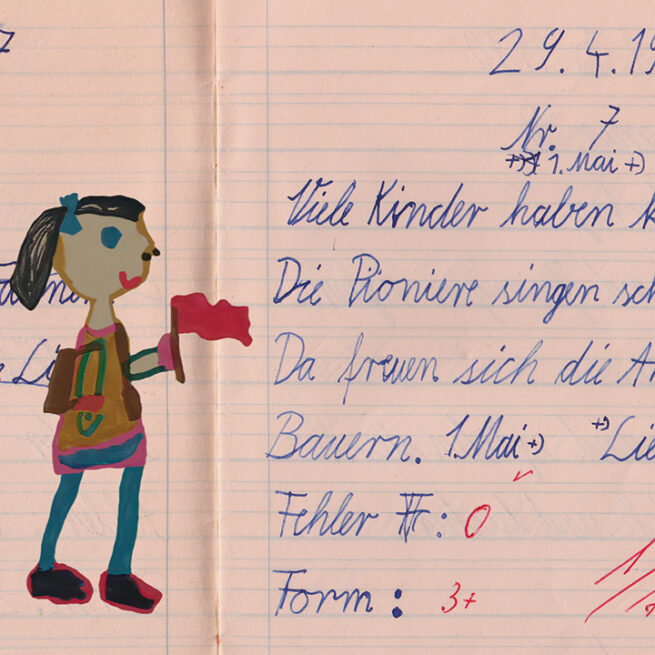 7
29.4.19
Nr. 7
1. Mai +)
Viele Kinder haben
Die Pioniere singen
Da freuen sich die
Bauern. 1. Mai +) +)
Fehler : 0
Form : 3+